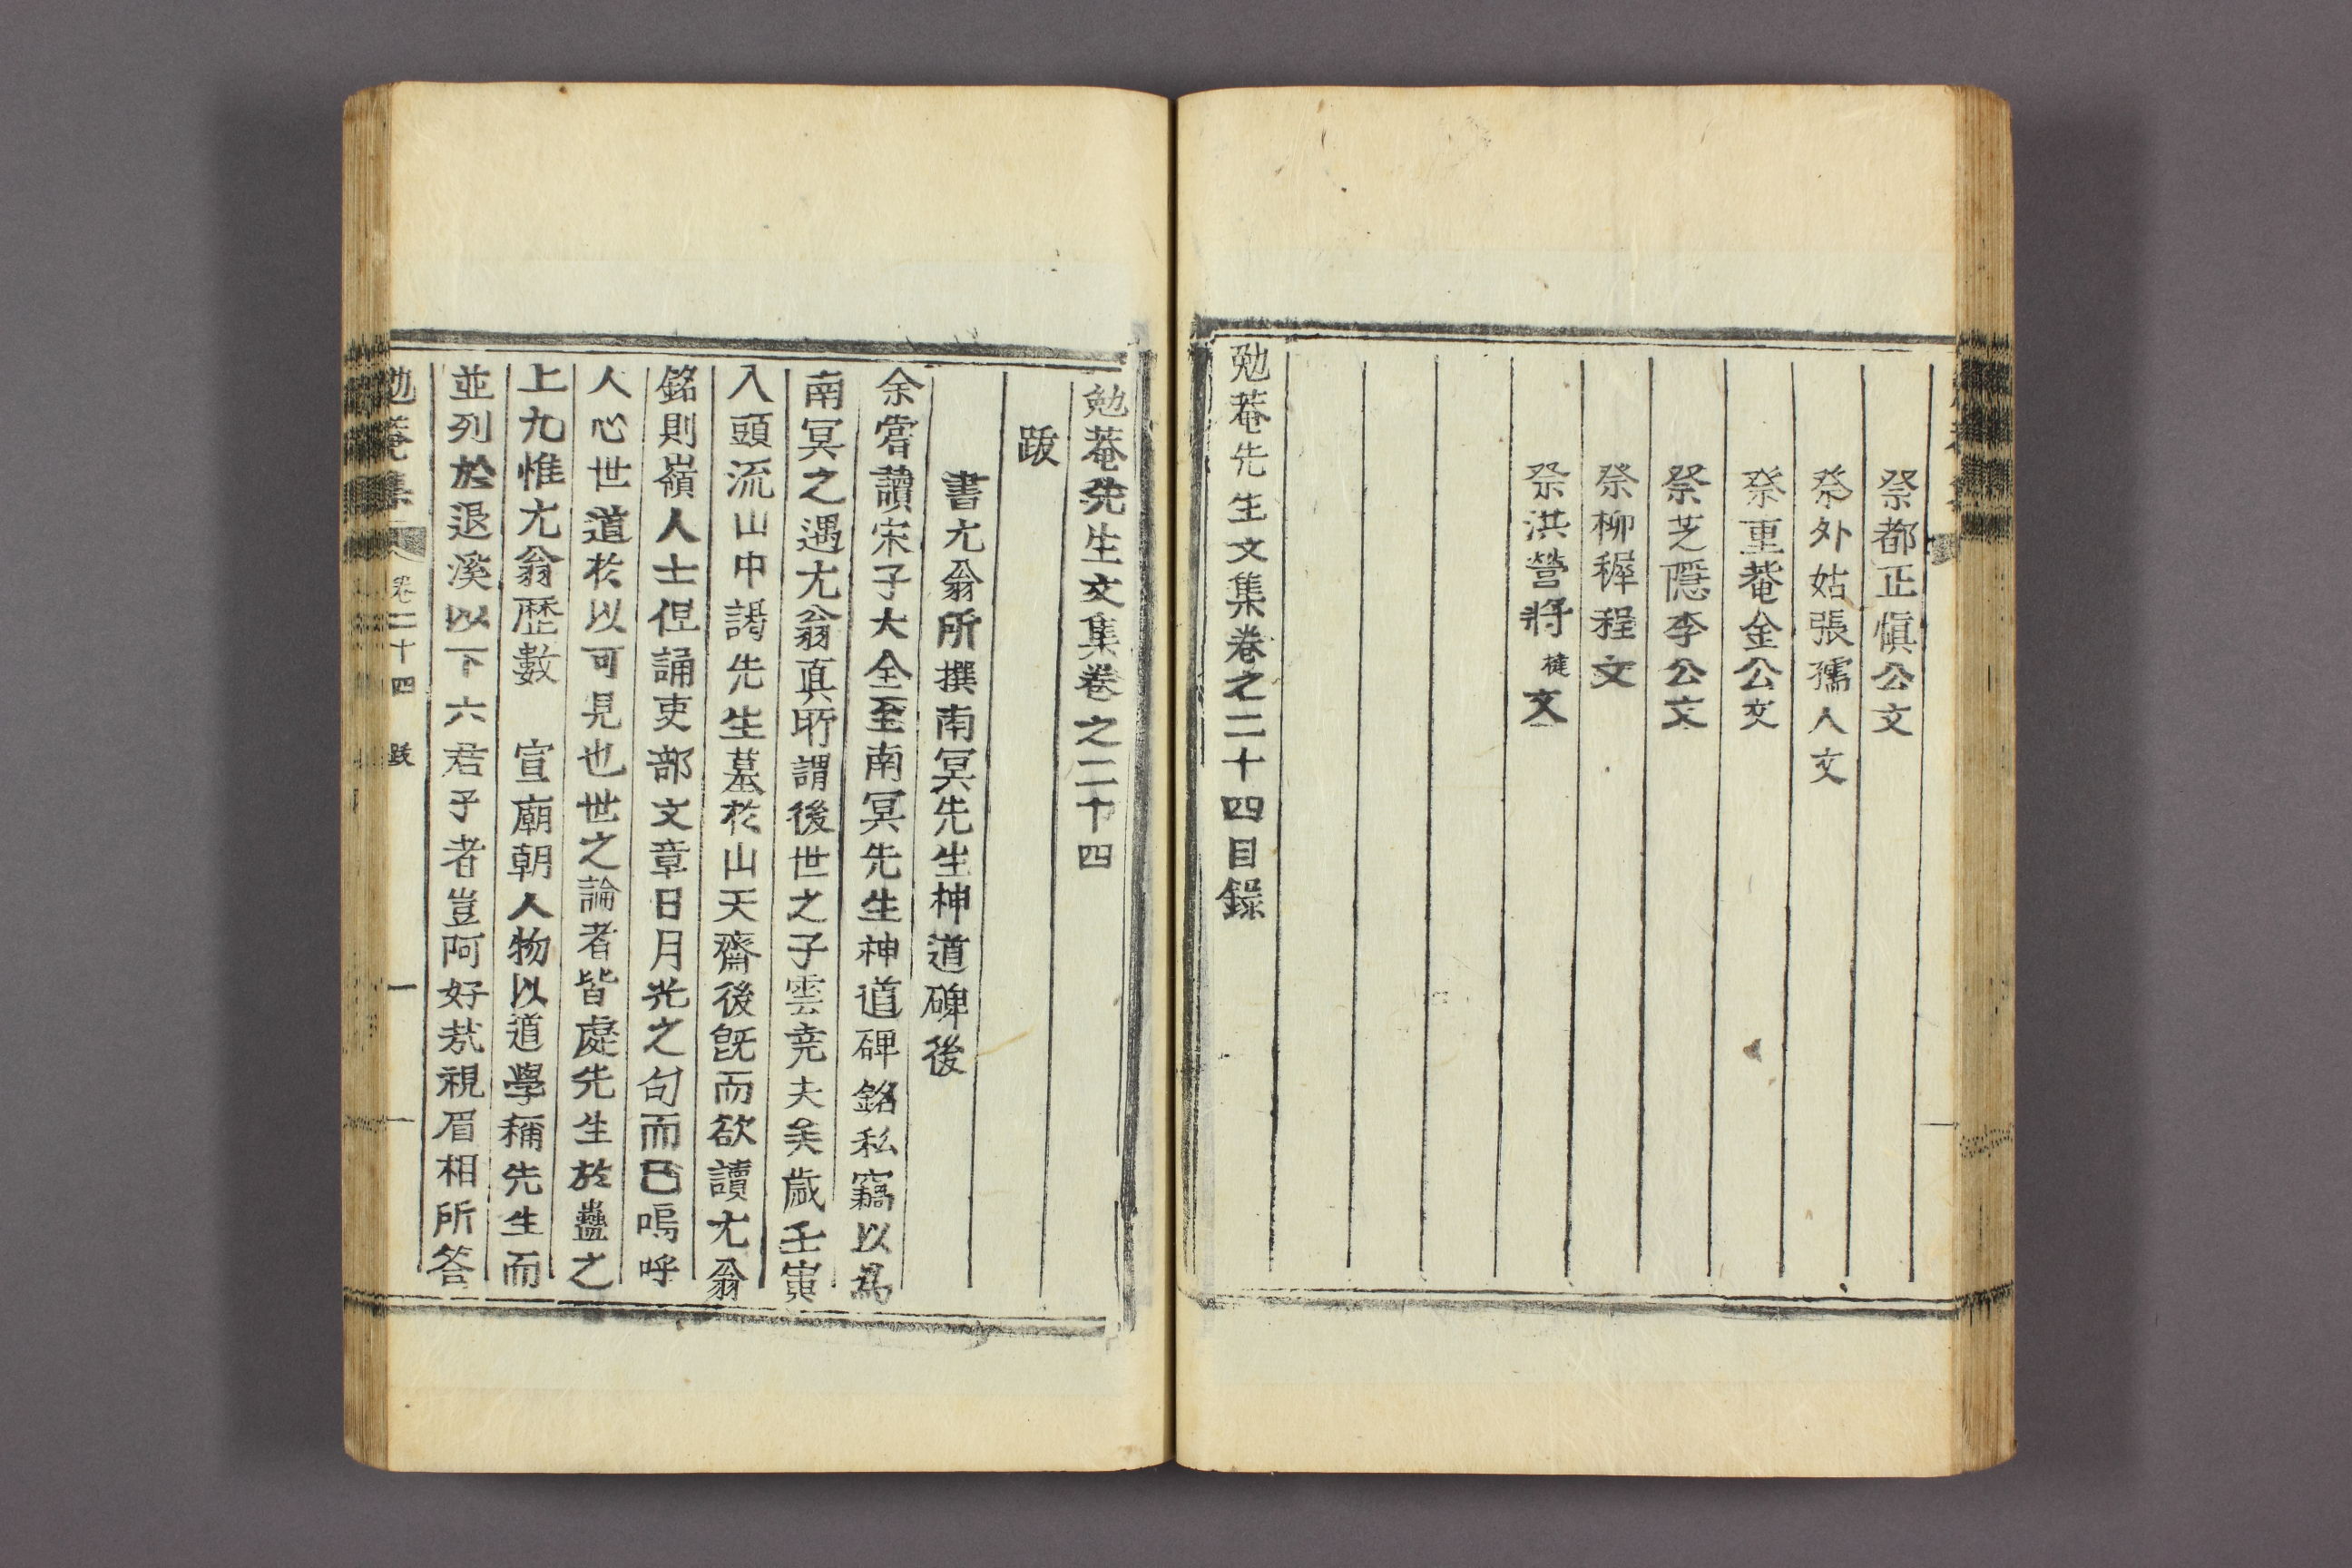 祭都正愼公文
祭外姑張孺人文
祭重菴金公文
祭芝隱李公文
祭柳稺程文
祭洪營將楗文
勉菴先生文集卷之二十四目録
勉菴先生文集卷之二十四
跋
書尤翁所撰南冥先生神道碑後
余嘗讀宋子大全至南冥先生神道碑銘私竊以爲
南冥之遇尤翁眞所謂後世之子雲堯夫矣歲壬寅
入頭流山中謁先生墓於山天齋後旣而欲讀尤翁
銘則嶺人士但誦吏部文章日月光之句而已嗚呼
人心世道於以可見也世之論者皆處先生於蠱之
上九惟尤翁歷數　宣廟朝人物以道學稱先生而
並列於退溪以下六君子者豈阿好哉視眉相所答
勉菴集　卷二十四　跋　一